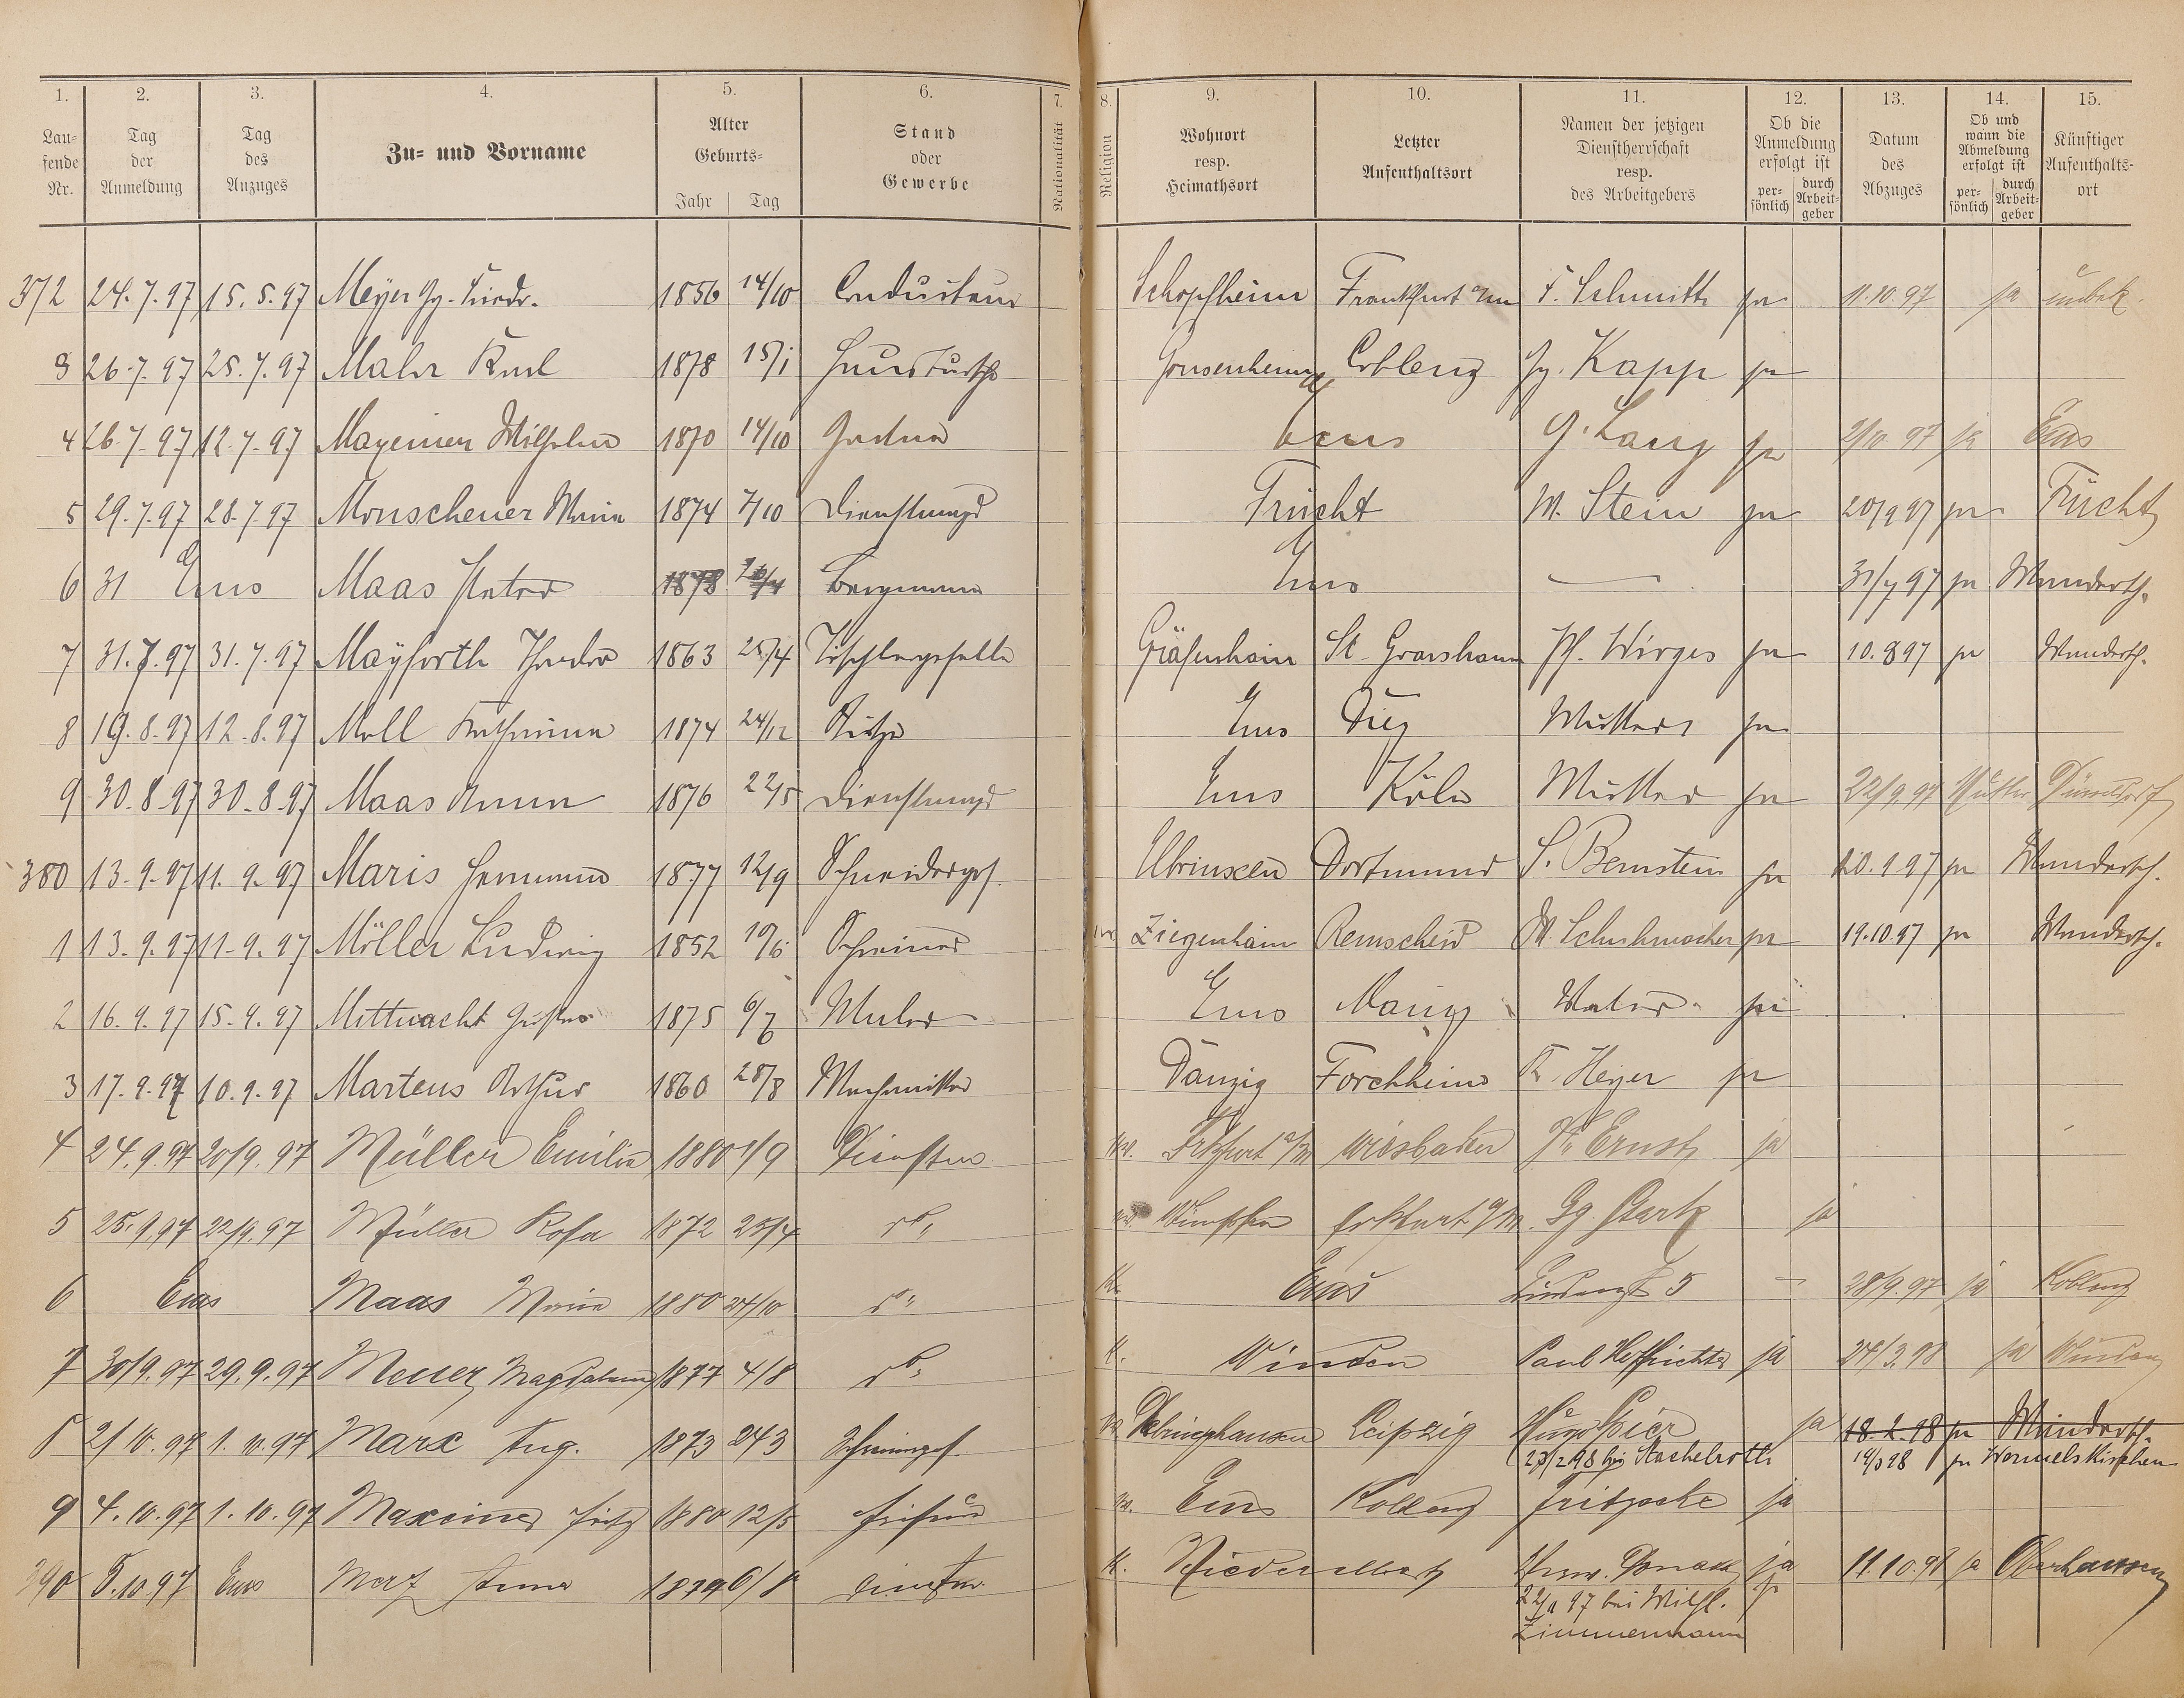 1. 2. 3. 4. 5. 6. 7. 8. 9. 10. 11. 12. 13. 14. 15.
Laufende Nr. | Tag der Anmeldung | Tag des Anzuges | Zu- und Vorname | Alter Geburts- Jahr Tag | Stand oder Gewerbe | Nationalität | Religion | Wohnort resp. Heimathsort | Letzter Aufenthaltsort | Namen der jetzigen Dienstherrschaft resp. des Arbeitgebers | Ob die Anmeldung erfolgt ist persönlich durch Arbeitgeber | Datum des Abzuges | Ob und wann die Abmeldung erfolgt ist persönlich durch Arbeitgeber | Künftiger Aufenthaltsort
372 24.7.97 15.5.97 Meyer Gg. Friedr. 1856 14/10 Conducteur Schopfheim Frankfurt a/m F. Schmitth ja 11.10.97 ja unbek.
3 26.7.97 25.7.97 Mahr Karl 1878 15/1 Hausbursche Gonsenheim Coblenz Gg. Kapp ja
4 26.7.97 12.7.97 Mayeiner Wilhelm 1870 14/10 G. Lang ja 2/10.97 ja Ems
5 29.7.97 28.7.97 Monscheuer Maria 1874 7/10 Dienstmagd Frücht W. Stein ja 20/9 97 ja Frücht
6 31 Ems Maas Peter 1878 Bergmann Ems — 31/7 97 ja Wandersch.
7 31.7.97 31.7.97 Mayforth Theodor 1863 25/4 Tischlergeselle Gräfenhain St. Goarshausen Ph. Wirges ja 10.8 97 ja Wandersch.
8 19.8.97 12.8.97 Moll Katharina 1874 24/12 Ems Diez Mutter ja
9 30.8.97 30.8.97 Maas Anna 1876 22/5 Dienstmagd Ems Köln Mutter ja 22/9.97 Mutter Düsseldorf
380 13.9.97 11.9.97 Maris Hermann 1877 12/9 Schneiderges. Dortmund S. Bernstein ja 20.9.97 ja Wandersch.
1 13.9.97 11.9.97 Möller Ludwig 1852 10/6 Schreiner Ziegenhain Remscheid W. Schuhmacher ja 19.10.97 ja Wandersch.
2 16.9.97 15.9.97 Mittnacht Gustav 1875 6/7 Maler Ems Mainz Vater ja
3 17.9.97 10.9.97 Martens Arthur 1860 28/8 Mechaniker Danzig Forchheim K. Heyer ja
4 24.9.97 20/9.97 Müller Emilie 1880 1/9 Dienstm. ev. Frkfurt a/M Wiesbaden Fr. Ernst ja
5 25.9.97 22/9.97 Müller Rosa 1872 25/4 do. Frkfurt a/M. Gg. Stark ja
6 Ems Maas Maria 1880 24/10 do. K. Ems 5 — 28/9.97 ja Koblenz
7 30/9.97 29.9.97 Meuer Magdalena 1877 4/8 do. K. Winden Paul Hoffrichter ja 24/3.98 ja Winden
8 2/10.97 1.10.97 Marx Aug. 1873 24 3 Schreinerges. ev. Dabringhausen Leipzig Hugo Bier ja 18.2.98 ja Wandersch.
23/2 98 bei Stachelroth 14/3 98 ja Wermelskirchen
9 4.10.97 1.10.97 Maxeiner Fritz 1880 12/5 Friseur ev. Ems Koblenz Fritzsche ja
390 5.10.97 Ems Merz Anna 1879 6/8 Dienstm. K. Niederelbert Herm. Donath ja 11.10.98 ja Oberhausen
22/11 97 bei Wilh. ja
Zimmermann